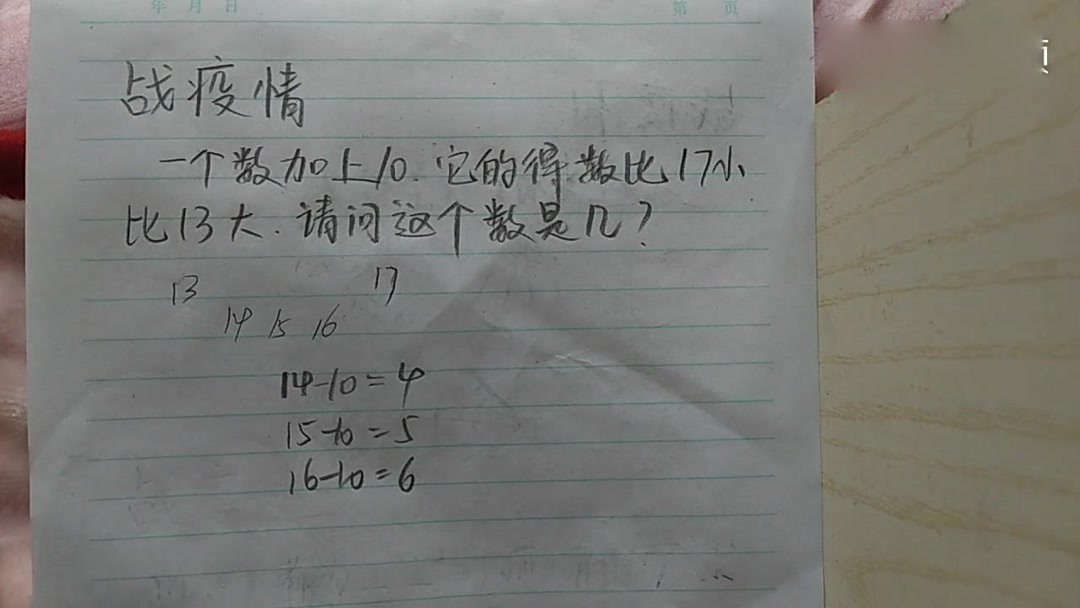 年 月 日 第 页
战疫情
一个数加上10.它的得数比17小
比13大.请问这个数是几?
13 17
14 15 16
14-10=4
15-10=5
16-10=6